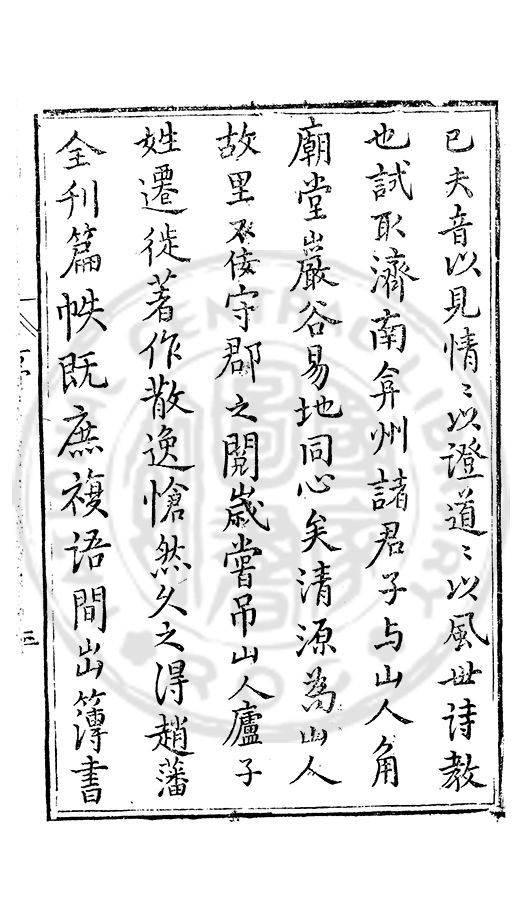 已夫音以見情〻以證道〻以風世詩教
也試取濟南弇州諸君子与山人角
廟堂巖谷易地同心矣清源為山人
故里不佞守郡之閱歲嘗弔山人廬子
姓遷徙著作散逸愴然久之得趙藩
全刊篇帙既庶複語間出簿書
三